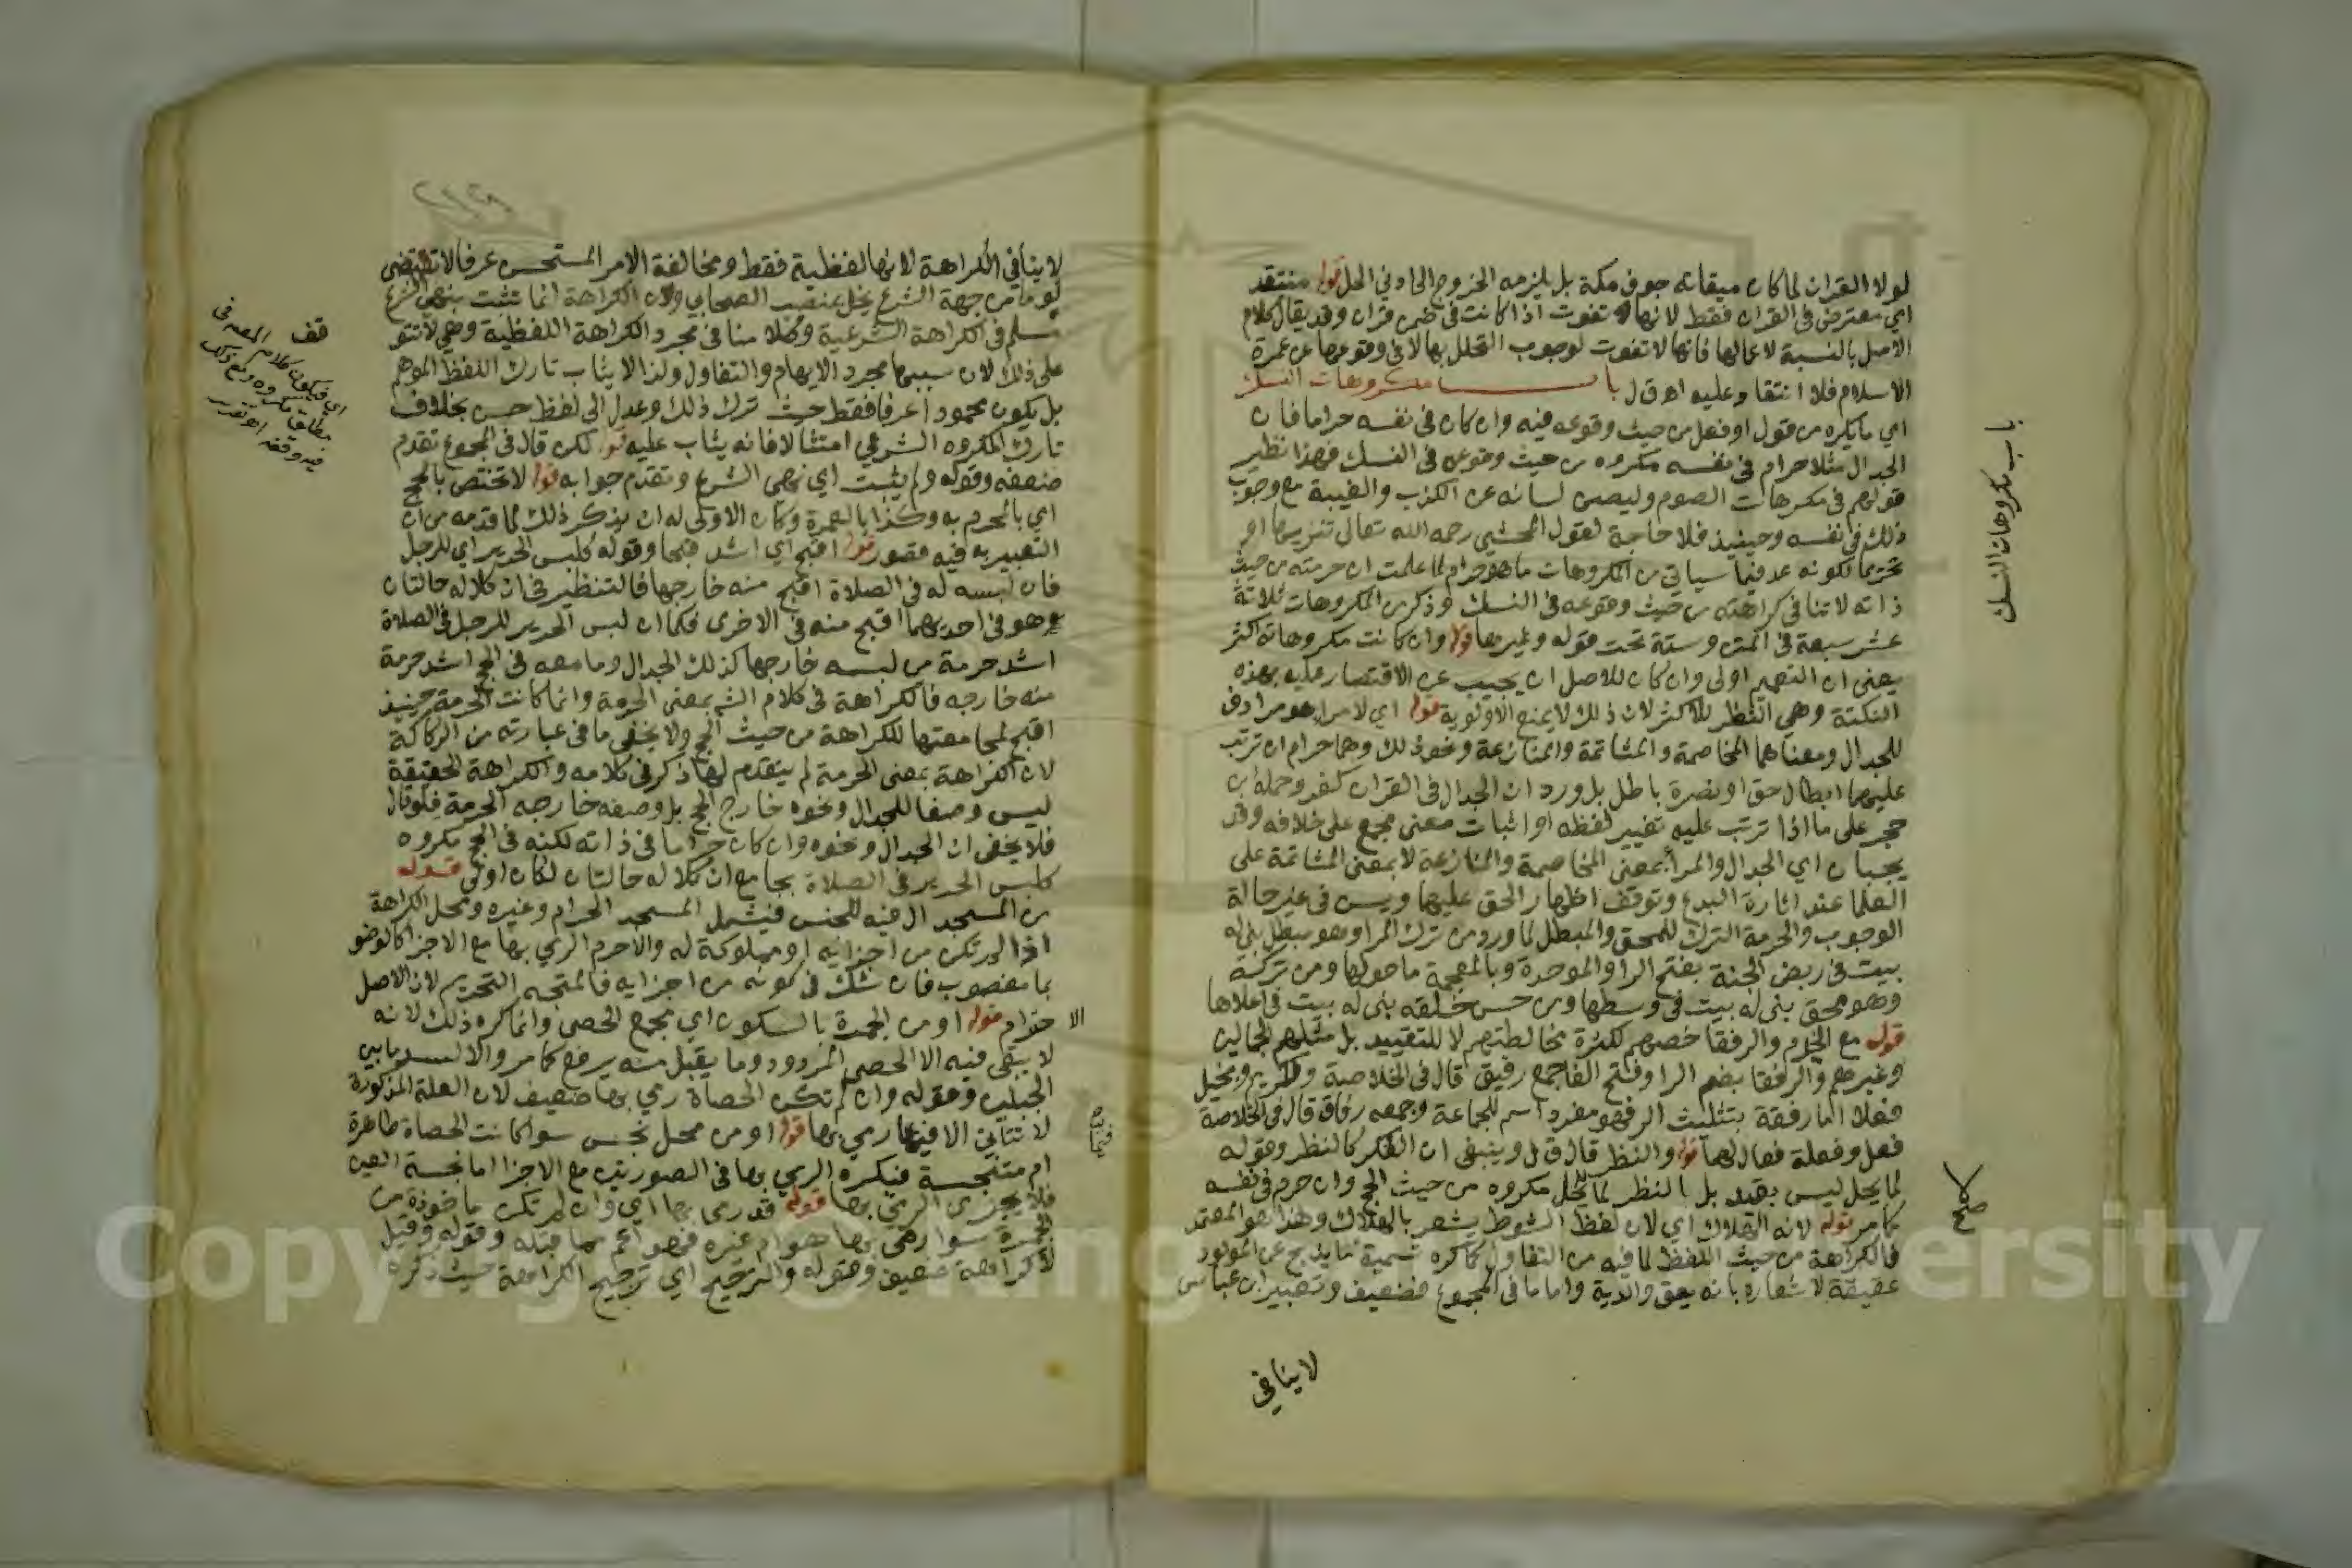 لولا القران لما كان ميقاته جوف مكة بل يلزمه الخروج الى ادنى الحل قوله منتقد
اي معترض في القران فقط لانها تفوت اذا كانت في ضمن قران وقد يقال كلام
الاصل بالنسبة لاعمالها فانها لا تفوت لوجوب التحلل بها لا في وقوعها عن عمرة
الاسلام فلا انتقاد عليه اه ق ل باب مكروهات النسك
اي ما يكره من قول او فعل من حيث وقوعه فيه وان كان في نفسه حراما فان
الجدال مثلا حرام في نفسه مكروه من حيث وقوعه في النسك فهذا نظير
قولهم في مكروهات الصوم وليصن لسانه عن الكذب والغيبة مع وجوب
ذلك في نفسه وحينيذ فلا حاجة لقول المحشي رحمه الله تعالى تنزيها او
تحريما لكونه عد فيما سياتي من المكروهات ما هو حرام لما علمت ان حرمته من حيث
ذاته لا تنافي كراهته من حيث وقوعه في النسك وذكر من المكروهات ثلاثة
عشر سبعة في المتن وستة تحت قوله وغيرها قوله وان كانت مكروهاته اكثر
يعني ان التعميم اولى وان كان للاصل ان يجيب عن الاقتصار عليه بهذه
النكتة وهي النظر للاكثر لان ذلك لا يمنع الاولوية قوله اي لا مرا هو مرادف
للجدال ومعناهما المخاصمة والمشاتمة والمنازعة ونحو ذلك وهما حرام ان ترتب
عليهما ابطال حق او نصرة باطل بل ورد ان الجدال في القران كفر وحمله ابن
حجر على ما اذا ترتب عليه تغيير لفظه او اثبات معنى مجمع على خلافه وقد
يجبان اي الجدال والمرا بمعنى المخاصمة والمنازعة لا بمعنى المشاتمة على
العلما عند اثارة البدع وتوقف اظهار الحق عليهما ويسن في غير حالة
الوجوب والحرمة الترك للمحق والمبطل لما ورد من ترك المرا وهو مبطل بني له
بيت في ربض الجنة بفتح الرا والموحدة وبالمعجمة ما حولها ومن تركه
وهو محق بني له بيت في وسطها ومن حسن خلقه بني له بيت في اعلاها
قوله مع الخدم والرفقا خصهم لكثرة مخالطتهم لا للتقييد بل مثلهم الجمالين
وغيرهم والرفقا بضم الرا وفتح الفا جمع رفيق قال في الخلاصة ولكريم وبخيل
فعلا اما رفقة بتثليث الرا فهو مفرد اسم للجماعة وجمعه رفاق قال في الخلاصة
فعل وفعلة فعال لهما قوله والنظر قال ق ل وينبغي ان الفكر كالنظر وقوله
لما يحل ليس بقيد بل النظر لما لا يحل مكروه من حيث الحج وان حرم في نفسه
كما مر قوله لانه الهلاك اي لان لفظ الشوط يشعر بالهلاك وهذا هو المعتمد
فالكراهة من حيث اللفظ لما فيه من التفاول كما كره تسمية ما يذبح عن المولود
عقيقة لاشعاره بانه يعق والديه واما ما في المجموع فضعيف وتعبير ابن عباس
لا ينافي
باب مكروهات النسك
لا ينافي الكراهة لانها لفظية فقط ومخالفة الامر المستحسن عرفا لا تقتضي
لوما من جهة الشرع يخل بمنصب الصحابي ولان الكراهة انما تثبت بنهي الشرع
مسلم في الكراهة الشرعية وكلامنا في مجرد الكراهة اللفظية وهي لا تتوقف
على ذلك لان سببها مجرد الايهام والتفاول ولذا لا يثاب تارك اللفظ الموهم
بل يكون محمودا عرفا فقط حيث ترك ذلك وعدل الى لفظ حسن بخلاف
تارك المكروه الشرعي امتثالا فانه يثاب عليه قوله لكن قال في المجموع تقدم
ضعفه وقوله ولم يثبت اي نهي الشرع وتقدم جوابه قوله لا تختص بالحج
اي بالمحرم به وكذا بالعمرة وكان الاولى له ان يذكر ذلك لما قدمه من ان
التعبير به فيه قصور قوله اقبح اي اشد قبحا وقوله كلبس الحرير اي للرجل
فان لبسه له في الصلاة اقبح منه خارجها فالتنظير في ان كلا له حالتان
وهو في احديهما اقبح منه في الاخرى فكما ان لبس الحرير للرجل في الصلاة
اشد حرمة من لبسه خارجها كذلك الجدال وما معه في الحج اشد حرمة
منه خارجه فالكراهة في كلام الشه بمعنى الحرمة وانما كانت الحرمة حينيذ
اقبح لمجامعتها للكراهة من حيث الحج ولا يخفى ما في عبارته من الركاكة
لان الكراهة بمعنى الحرمة لم يتقدم لها ذكر في كلامه والكراهة الحقيقة
ليس وصفا للجدال ونحوه خارج الحج بل وصفه خارجه الحرمة فلو قال
فلا يخفى ان الجدال ونحوه وان كان حراما في ذاته لكنه في الحج مكروه
كلبس الحرير في الصلاة بجامع ان كلا له حالتان لكان اولى قوله
من المسجد ال فيه للجنس فيشمل المسجد الحرام وغيره ومحل الكراهة
اذا لم تكن من اجزائه او مملوكة له والا حرم الرمي بها مع الاجزا كالوضو
بما مغصوب فان شك في كونه من اجزايه فالمتجه التحريم لان الاصل
الاحترام قوله او من الجمرة بالسكون اي مجمع الحصى وانما كره ذلك لانه
لا يبقى فيه الا الحصى المردود وما يقبل منه يرفع كما مر والا لسد ما بين
الجبلين وقوله وان لم تكن الحصاة رمي بها ضعيف لان العلة المذكورة
لا تتاتى الا فيما رمي بها قوله او من محل نجس سوا كانت الحصاة طاهرة
ام متنجسة فيكره الرمي بها في الصورتين مع الاجزا اما نجسة العين
فلا يجزى الرمي بها قوله قد رمى بها اي وان لم تكن ماخوذة من
الجمرة سوا رمى بها هو ام غيره فهو اعم مما قبله وقوله وقيل
لا كراهة ضعيف وقوله والترجيح اي ترجيح الكراهة حيث ذكره
قف
اي فيكون كلام المصه في
مطلق مكروه ومع ذلك
فيه وقفه اه تقرير